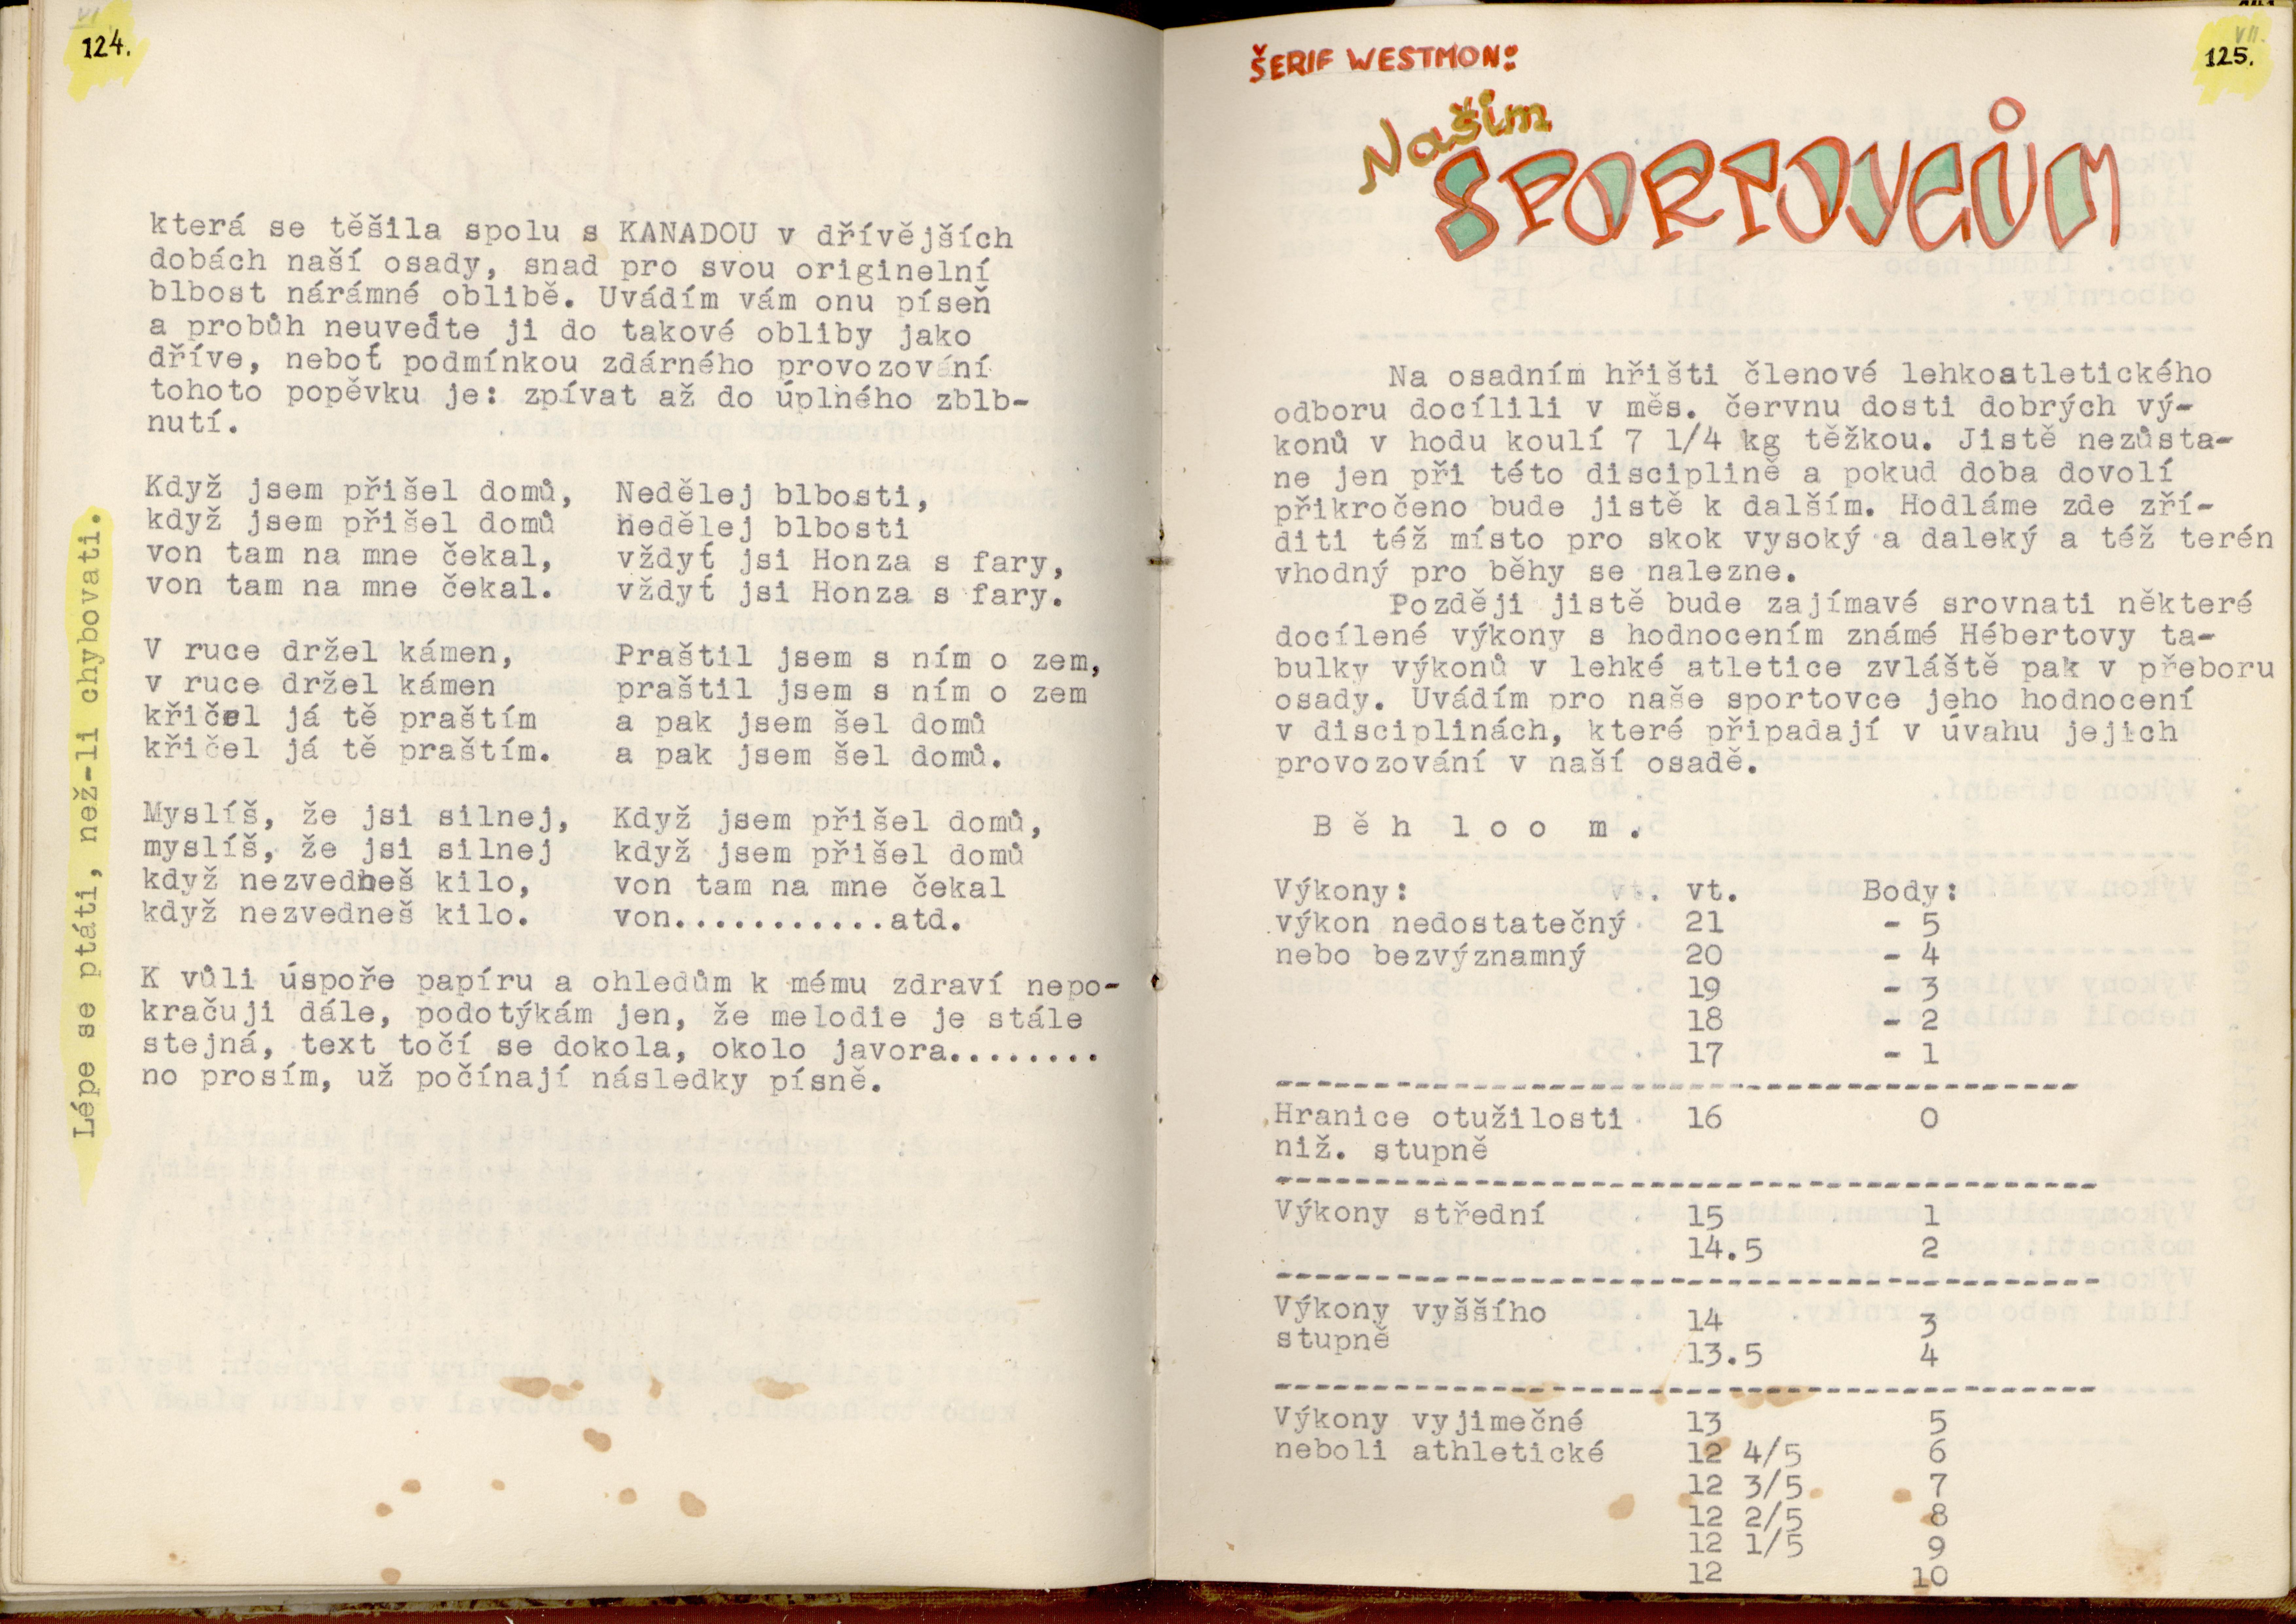 VI
124.
která se těšila spolu s KANADOU v dřívějších
dobách naší osady, snad pro svou originelní
blbost nárámné oblibě. Uvádím vám onu píseň
a probůh neuveďte ji do takové obliby jako
dříve, neboť podmínkou zdárného provozování
tohoto popěvku je: zpívat až do úplného zblb-
nutí.
Když jsem přišel domů,
když jsem přišel domů
von tam na mne čekal,
von tam na mne čekal.
V ruce držel kámen,
v ruce držel kámen
křičel já tě praštím
křičel já tě praštím.
Myslíš, že jsi silnej,
myslíš, že jsi silnej
když nezvedneš kilo,
když nezvedneš kilo.
Nedělej blbosti,
nedělej blbosti
vždyť jsi Honza s fary,
vždyť jsi Honza s fary.
Praštil jsem s ním o zem,
praštil jsem s ním o zem
a pak jsem šel domů
a pak jsem šel domů.
Když jsem přišel domů,
když jsem přišel domů
von tam na mne čekal
von...........atd.
K vůli úspoře papíru a ohledům k mému zdraví nepo-
kračuji dále, podotýkám jen, že melodie je stále
stejná, text točí se dokola, okolo javora........
no prosím, už počínají následky písně.
Lépe se ptáti, než-li chybovati.
VII.
125.
ŠERIF WESTMON:
Našim
SPORTOVCŮM
Na osadním hřišti členové lehkoatletického
odboru docílili v měs. červnu dosti dobrých vý-
konů v hodu koulí 7 1/4 kg těžkou. Jistě nezůsta-
ne jen při této disciplině a pokud doba dovolí
přikročeno bude jistě k dalším. Hodláme zde zří-
diti též místo pro skok vysoký a daleký a též terén
vhodný pro běhy se nalezne.
Později jistě bude zajímavé srovnati některé
docílené výkony s hodnocením známé Hébertovy ta-
bulky výkonů v lehké atletice zvláště pak v přeboru
osady. Uvádím pro naše sportovce jeho hodnocení
v disciplinách, které připadají v úvahu jejich
provozování v naší osadě.
B ě h  l o o  m .
Výkony: vt. Body:
výkon nedostatečný 21 - 5
nebo bezvýznamný 20 - 4
19 - 3
18 - 2
17 - 1
Hranice otužilosti 16 0
niž. stupně
Výkony střední 15 1
14.5 2
Výkony vyššího 14 3
stupně 13.5 4
Výkony vyjimečné 13 5
neboli athletické 12 4/5 6
12 3/5 7
12 2/5 8
12 1/5 9
12 10